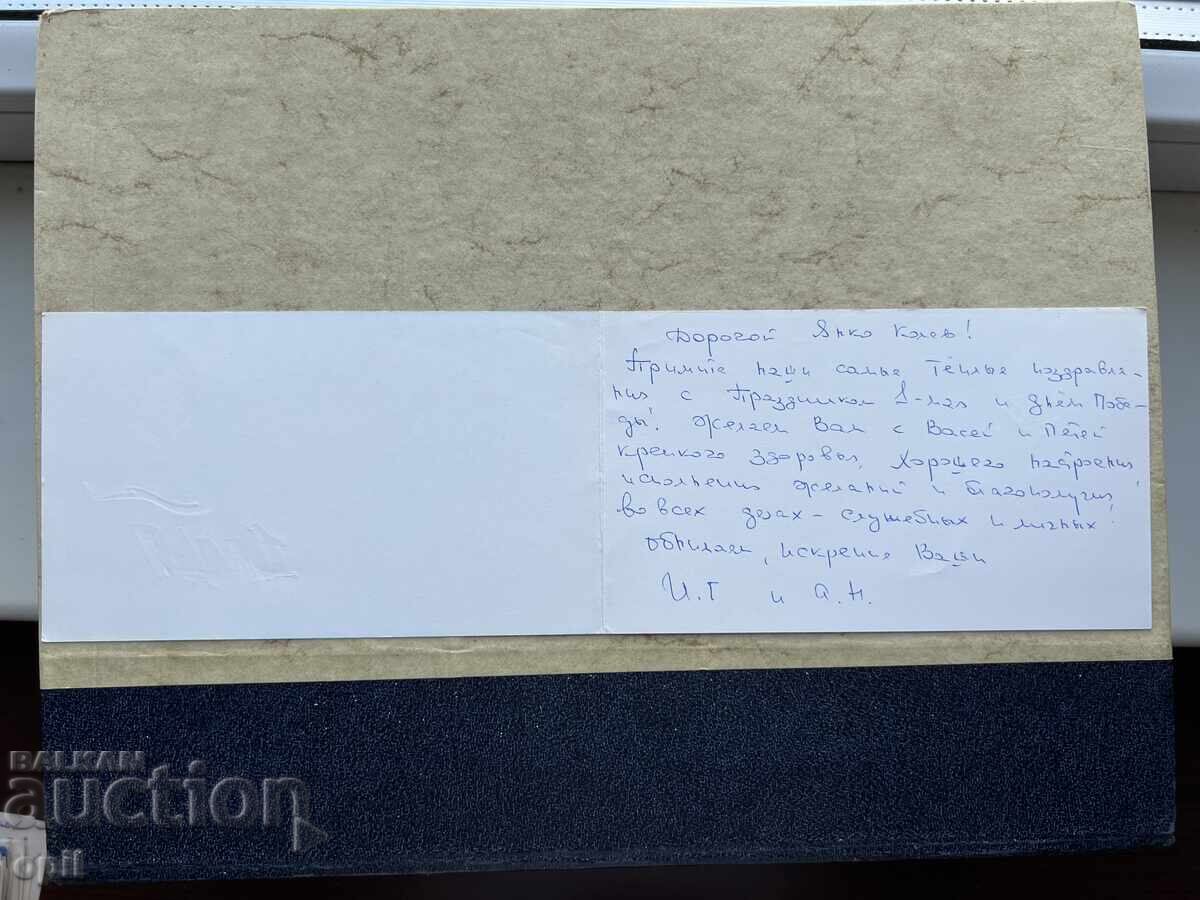 Дорогой Янко Колев!
Примите наши самые тёплые поздравле-
ния с Праздником 1-мая и днём Побе-
ды! Желаем Вам с Васей и Петей
крепкого здоровья, хорошего настроения
исполнения желаний и благополучия
во всех делах - служебных и личных!
Обнимаем, искренне Ваши
И.Г и А.Н.
BALKAN
auction
opil